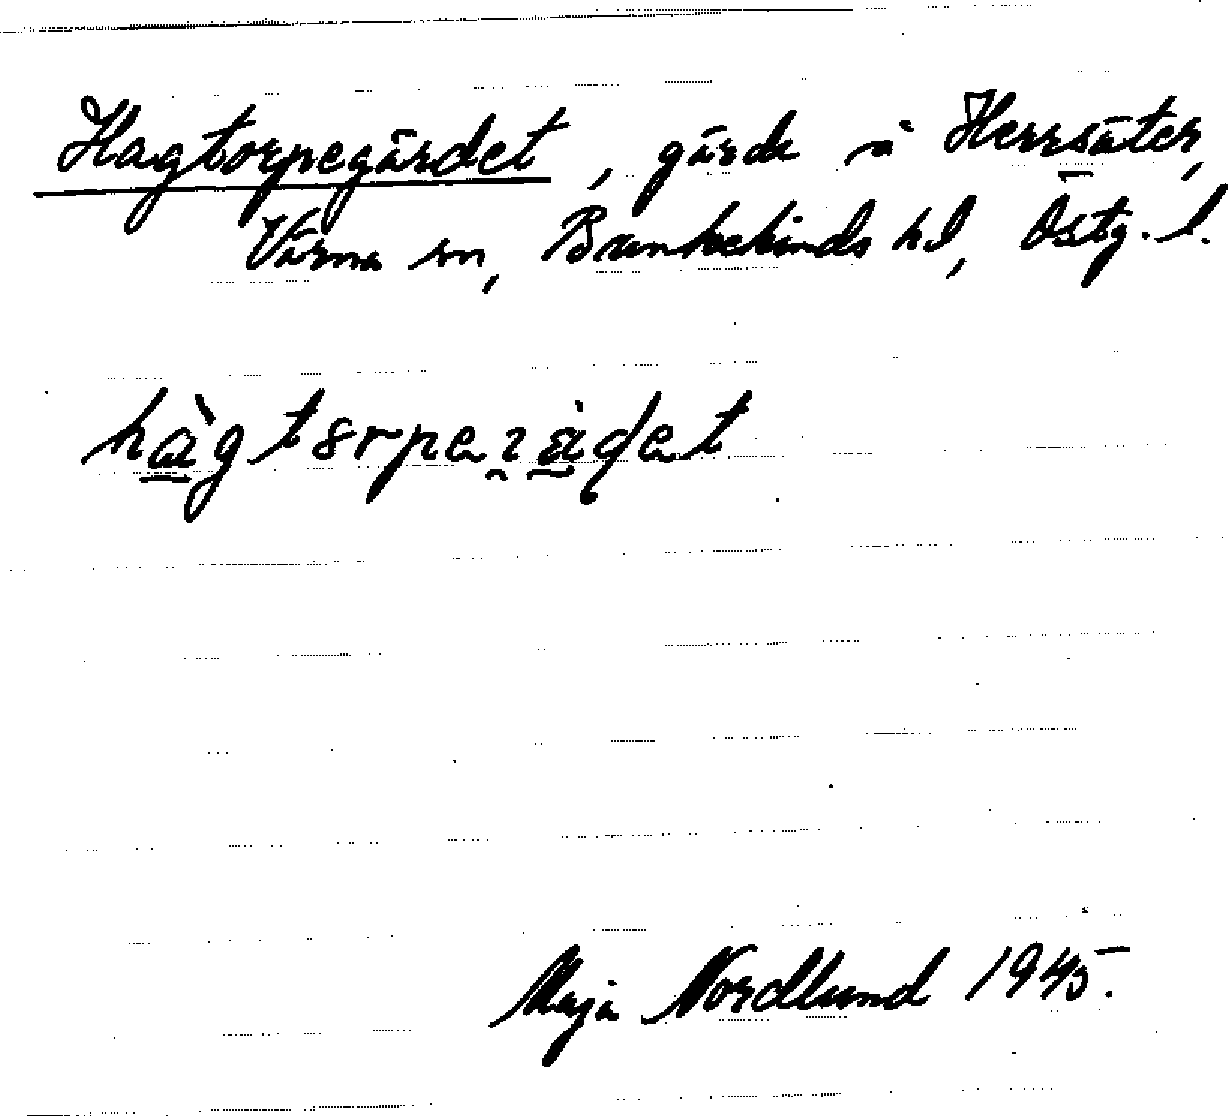 Hagtorpegärdet, gärde å Herrsäter,
Värna sn, Bankekinds hd, Östg. l.
Maja Nordlund 1945.